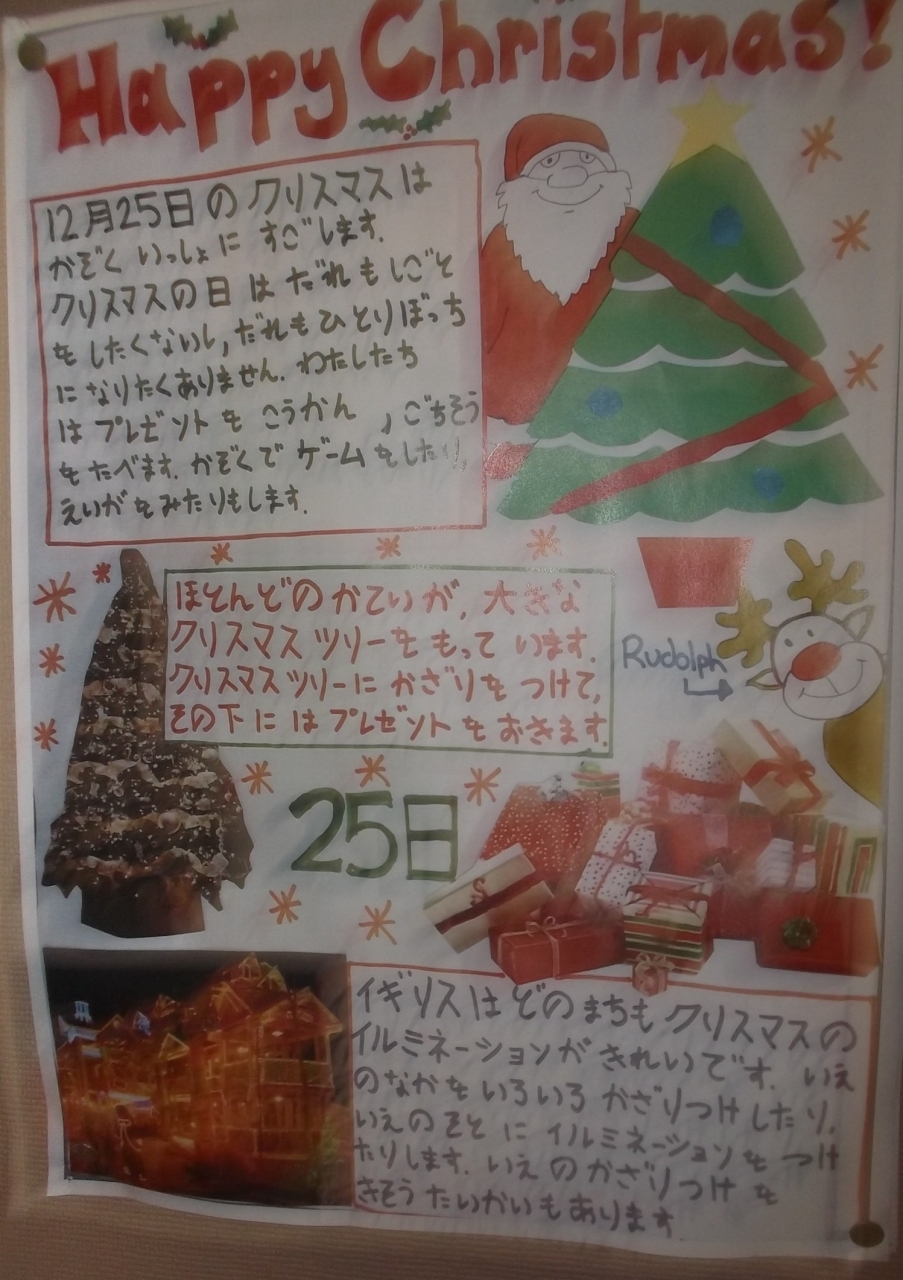 Happy Christmas!
12月25日のクリスマスは
かぞくいっしょに すごします.
クリスマスの日はだれもしごと
をしたくないし,だれもひとりぼっち
になりたくありません. わたしたち
はプレゼントをこうかん,ごちそう
をたべます. かぞくでゲームをしたり,
えいがをみたりもします.
ほとんどのかていが, 大きな
クリスマスツリーをもっています.
クリスマスツリーにかざりをつけて,
その下にはプレゼントをおきます.
Rudolph
25日
イギリスはどのまちもクリスマスの
イルミネーションがきれいです. いえ
のなかをいろいろかざりつけしたり,
いえのそとにイルミネーションをつけ
たりします. いえのかざりつけを
きそうたいかいもあります